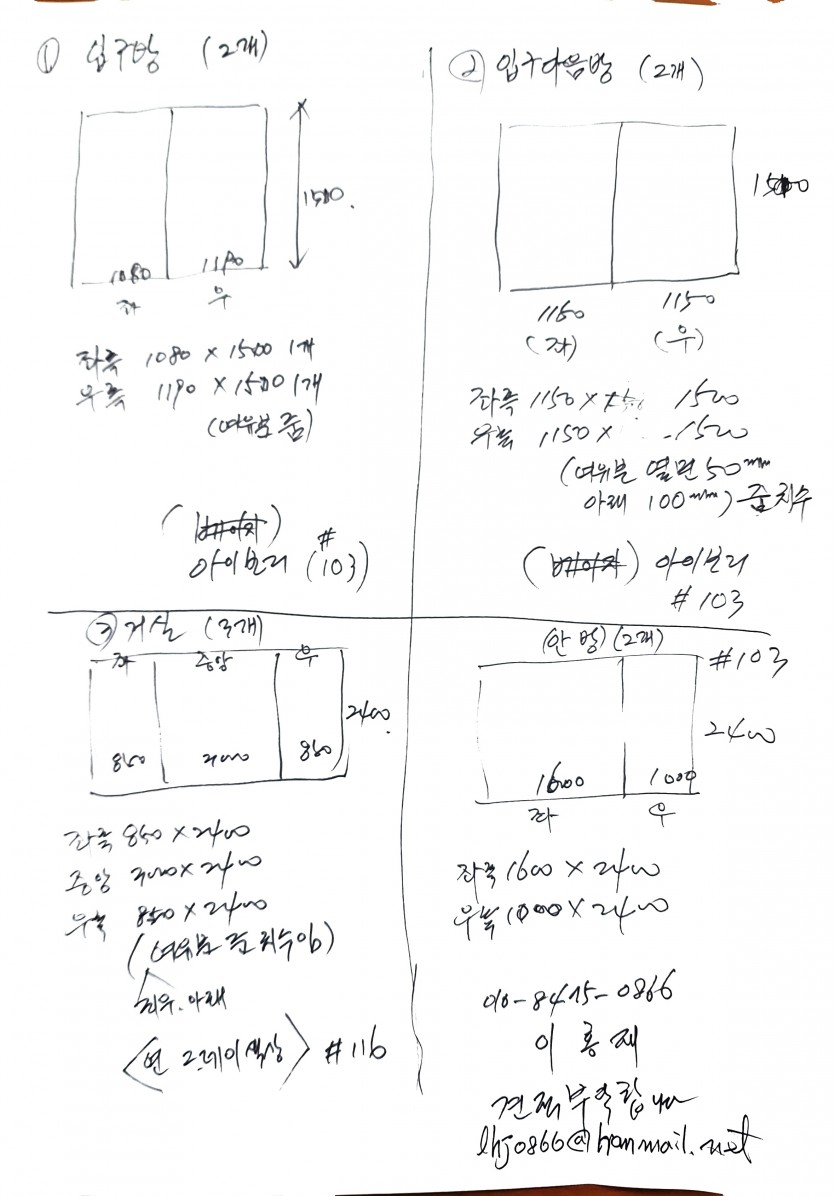 ① 입구방 (2개)
1500.
1080 1190
좌 우
좌측 1080 × 1500 1개
우측 1190 × 1500 1개
(여유분 줌)
(베이지)
아이보리 (#103)
② 입구다음방 (2개)
1500
1150 1150
(좌) (우)
좌측 1150 × 1500
우측 1150 × 1500
(여유분 옆면 50mm
아래 100mm) 준 치수
(베이지) 아이보리
#103
③ 거실 (3개)
좌 중앙 우
2400.
850 850
좌측 850 × 2400
중앙 × 2400
우측 850 × 2400
(여유분 준 치수임)
좌우.아래
<연 그레이 색상> #116
(안방) (2개)
#103
2400
1600 1000
좌 우
좌측 1600 × 2400
우측 1000 × 2400
010-8415-0866
이홍재
견적부탁합니다
lhj0866@hanmail.net